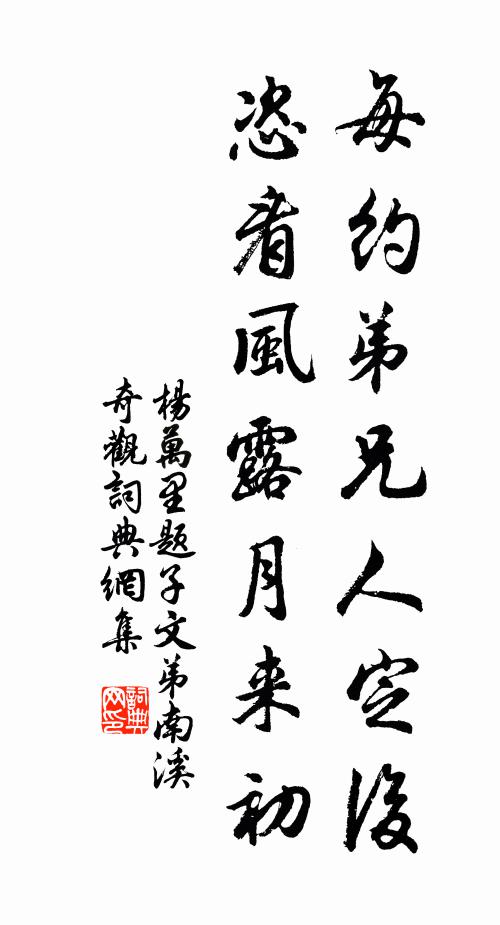 每约弟兄人定後
恣看風露月来初
楊萬里题子文弟南溪
奇觀詞典網集
詞典网印